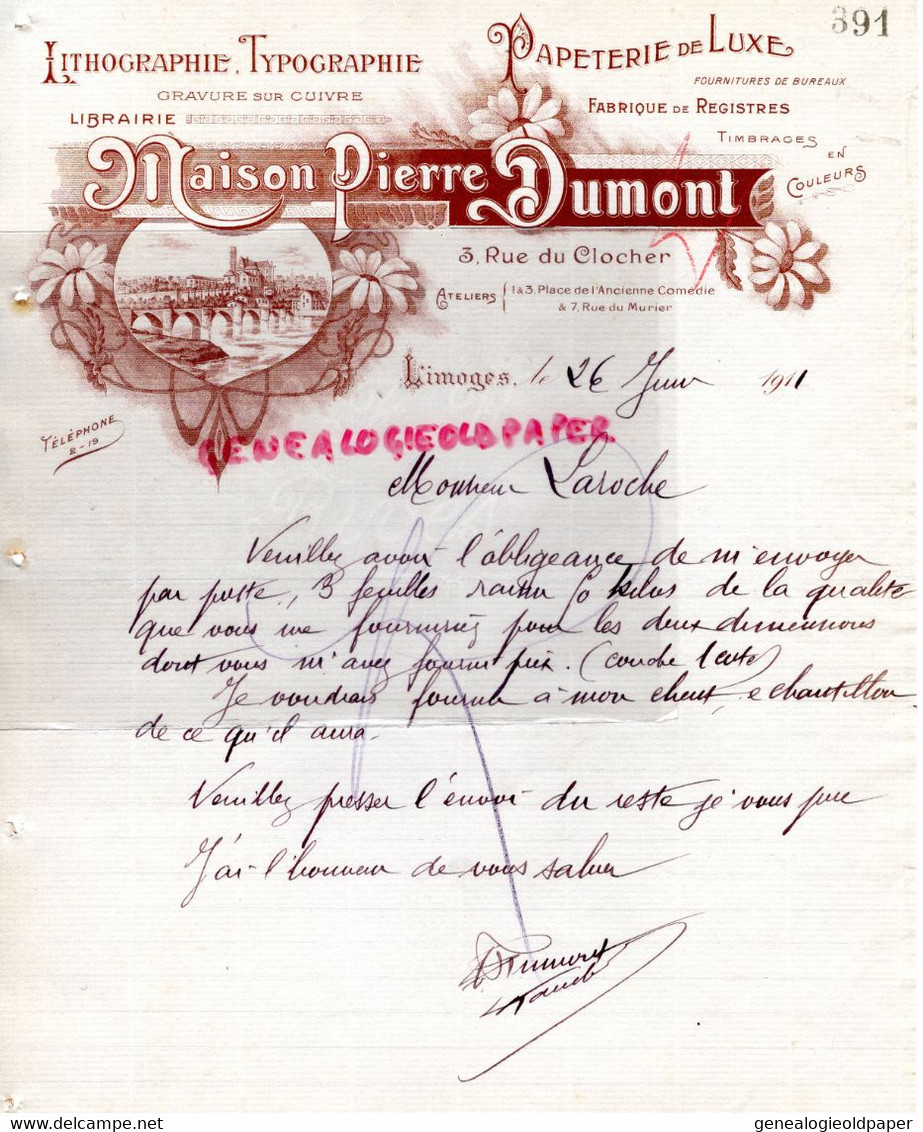 391
LITHOGRAPHIE, TYPOGRAPHIE
GRAVURE SUR CUIVRE
LIBRAIRIE
PAPETERIE DE LUXE
FOURNITURES DE BUREAUX
FABRIQUE DE REGISTRES
TIMBRAGES
EN
COULEURS
Maison Pierre Dumont
3, Rue du Clocher
ATELIERS 1 & 3, Place de l'Ancienne Comédie
& 7, Rue du Murier
Limoges, le 26 Juin 1911
TÉLÉPHONE
2-19
GENEALOGIEOLDPAPER
Monsieur Laroche
Veuillez avoir l'obligeance de m'envoyer
par poste, 3 feuilles raisin kilos de la qualité
que vous me fourniriez pour les deux dimensions
dont vous m'avez fourni prix. (couché 1 coté)
Je voudrais fournir à mon client, echantillon
de ce qu'il aura.
Veuillez presser l'envoi du reste je vous prie
J'ai l'honneur de vous saluer
PDumont
genealogieoldpaper